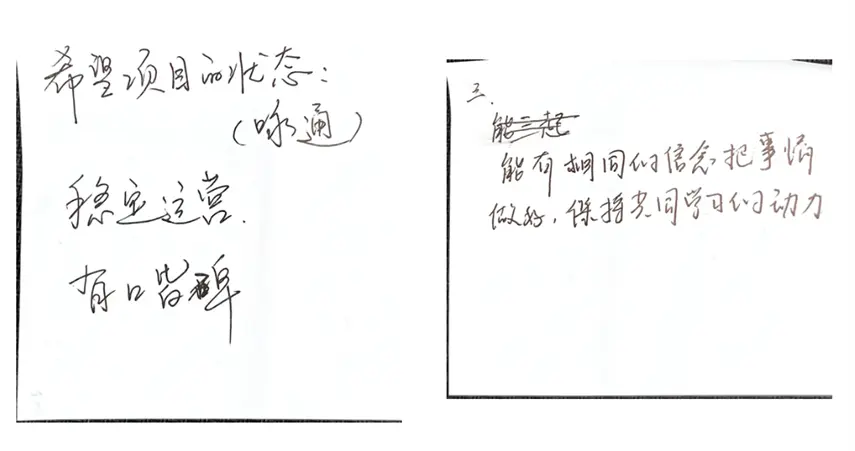 希望项目的状态：
（咏通）
稳定运营.
有口皆碑
三.
能有相同的信念把事情
做好，保持共同学习的动力